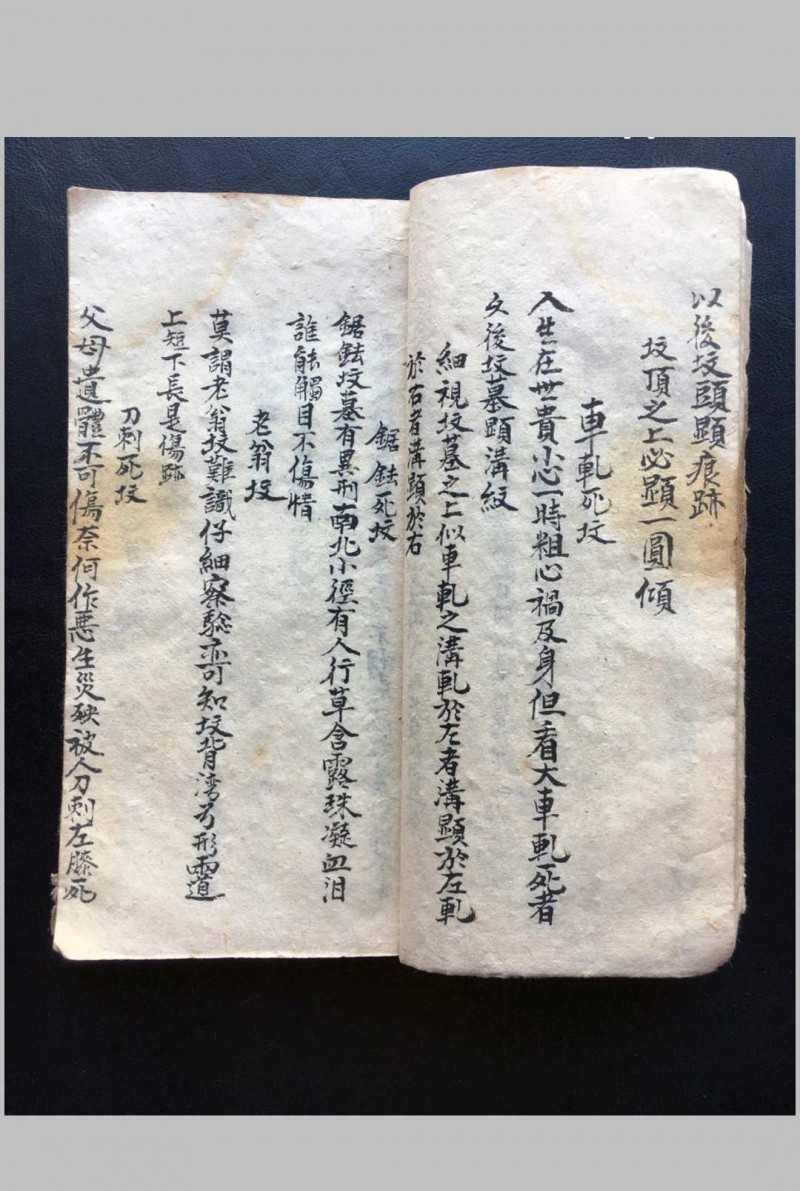 以後坟頭顕痕跡
坟頂之上必顕一圓傾
車軋死坟
人生在世貴小心一時粗心禍及身但看大車軋死者
久後坟墓顕溝紋
細視坟墓之上似車軋之溝軋於左者溝顕於左軋
於右者溝顕於右
鋸鉣死坟
鋸鉣坟墓有異刑南北小徑有人行草含露珠凝血泪
誰能觸目不傷情
老翁坟
莫謂老翁坟難識仔細察驗亦可知坟背湾弓形両道
上短下長是傷跡
刀刺死坟
父母遺體不可傷奈何作惡生災殃被人刀刺左膝死